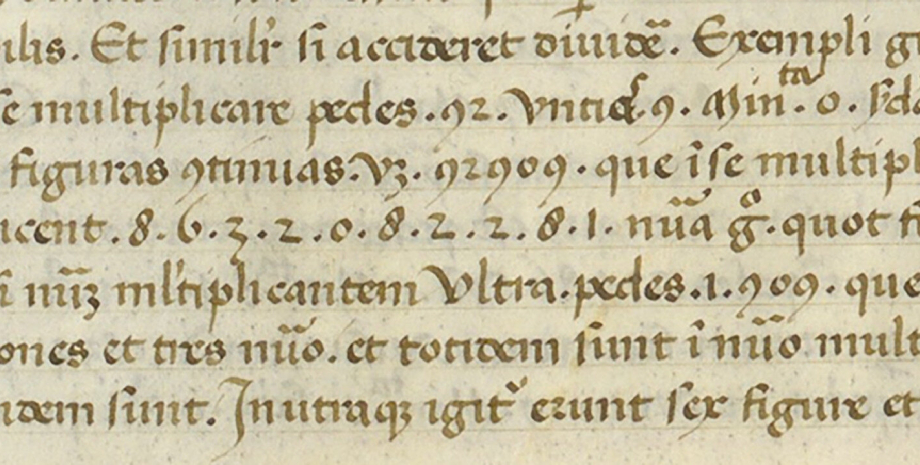 ilis. Et simil'r si accideret diuidē. Exempli g
se multiplicare pedes .92. Vntias .9. Min.ta 0. scd
figuras ꝯtinuas. vꝫ. 92909. que ī se multipl
icent. 8. 6. 3. 2. 0. 8. 2. 2. 8. 1. nūa g̊. quot fi
ī nūꝫ ml'tiplicantem Vltra. pedes .1. 909. que
ones et tres nūo. et totidem sunt ī nūo mult
idem sunt. In utraqꝫ igit' erunt sex figure et